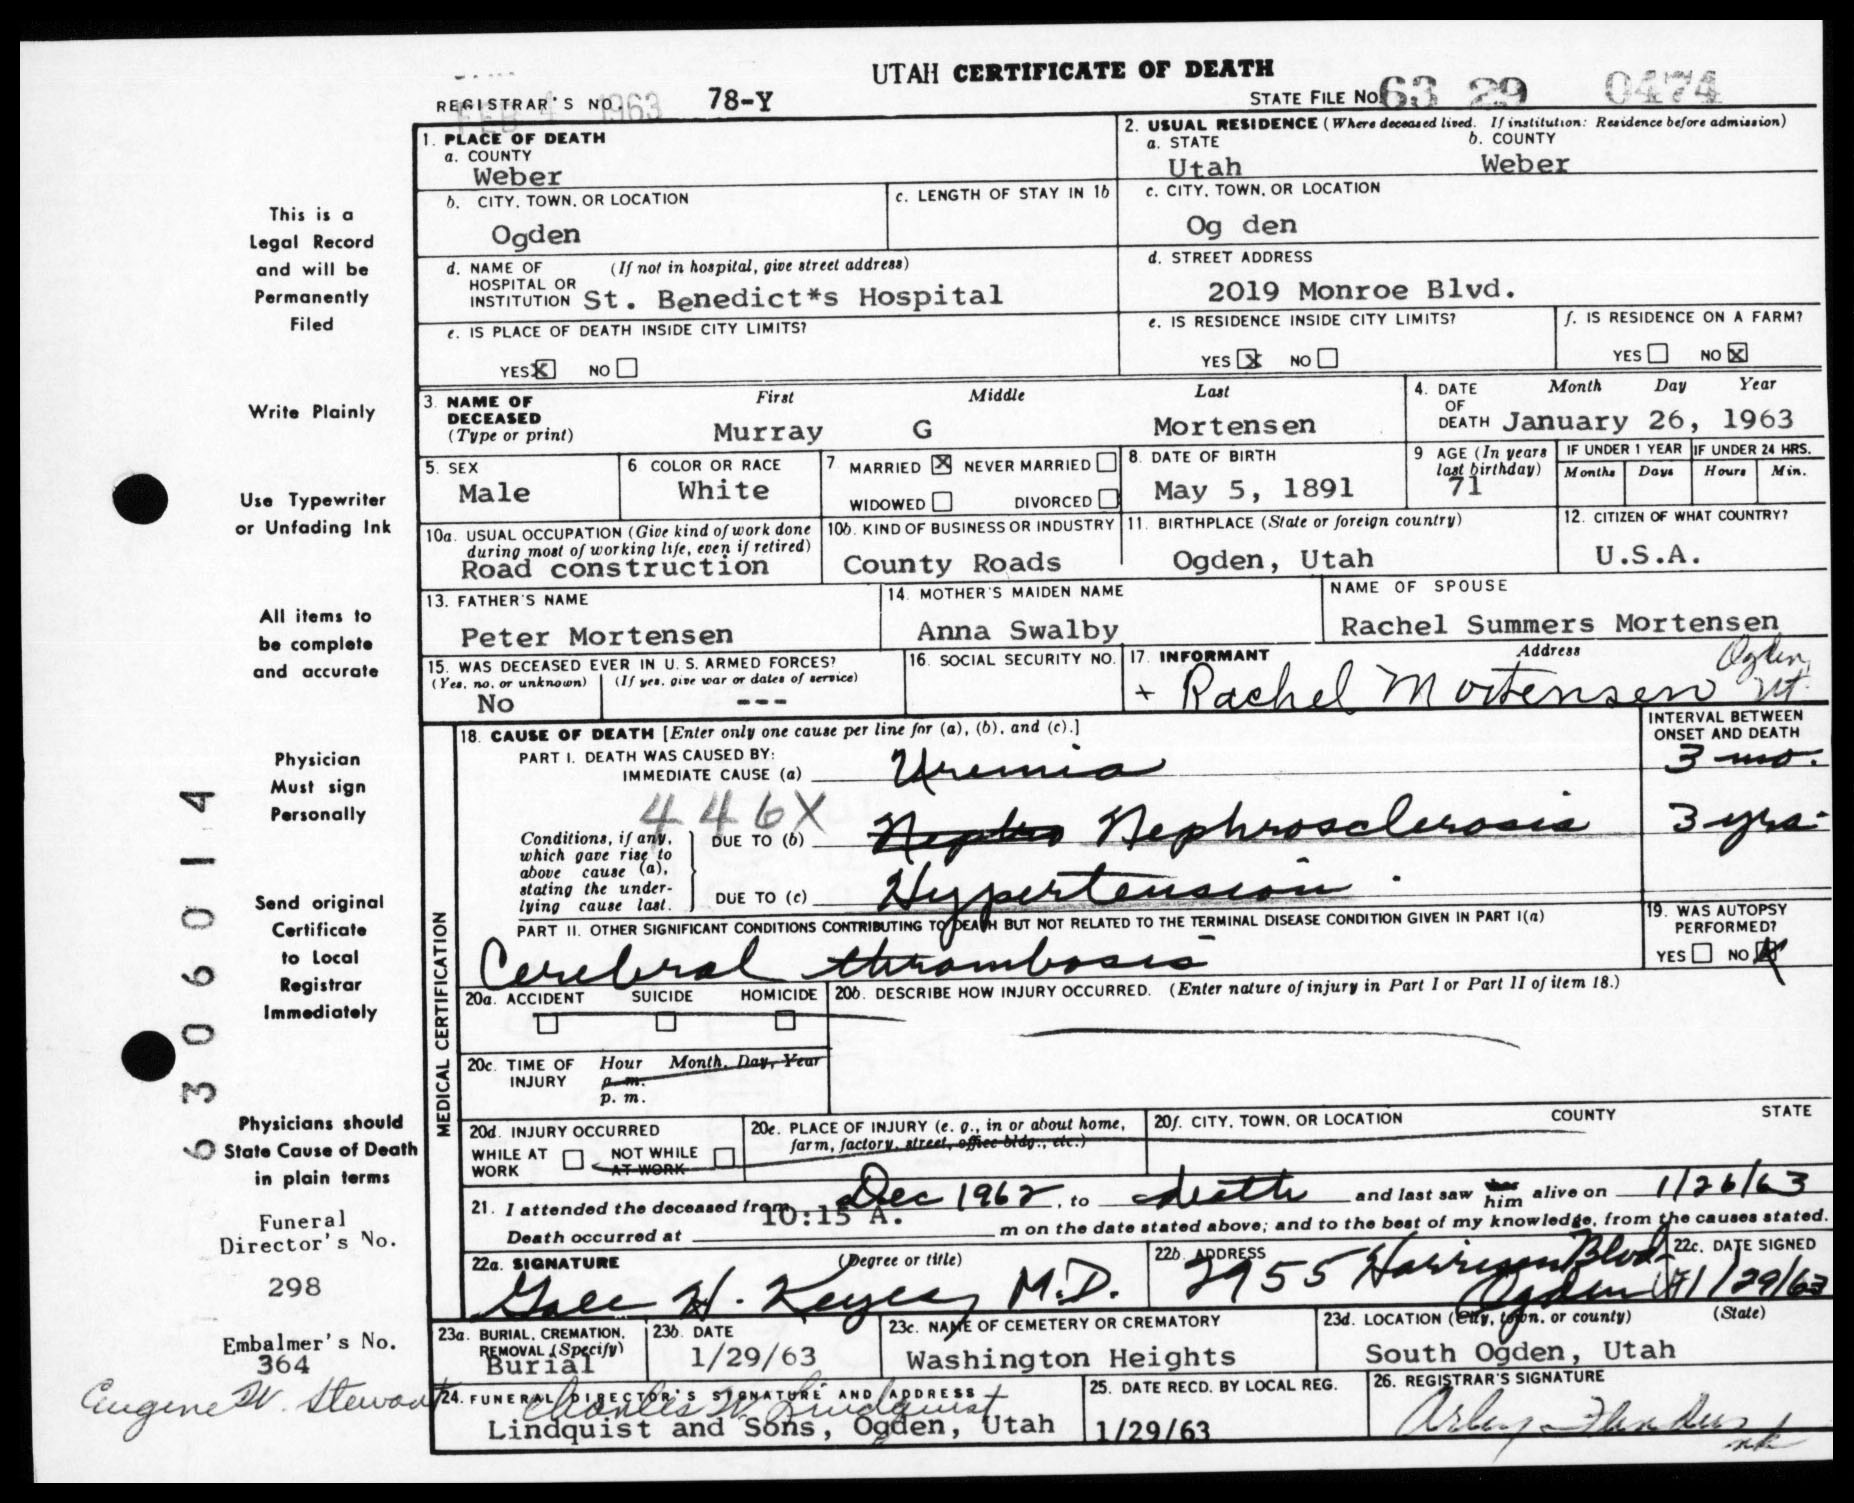 UTAH CERTIFICATE OF DEATH
REGISTRAR'S NO. 78-Y
FEB 4 1963
STATE FILE NO. 63 29 0474
1. PLACE OF DEATH
a. COUNTY
Weber
2. USUAL RESIDENCE (Where deceased lived. If institution: Residence before admission)
a. STATE b. COUNTY
Utah Weber
b. CITY, TOWN, OR LOCATION
Ogden
c. LENGTH OF STAY IN 1b
c. CITY, TOWN, OR LOCATION
Og den
d. NAME OF (If not in hospital, give street address)
HOSPITAL OR
INSTITUTION St. Benedict*s Hospital
d. STREET ADDRESS
2019 Monroe Blvd.
e. IS PLACE OF DEATH INSIDE CITY LIMITS?
YES X NO
e. IS RESIDENCE INSIDE CITY LIMITS?
YES X NO
f. IS RESIDENCE ON A FARM?
YES NO X
3. NAME OF DECEASED (Type or print)
First Middle Last
Murray G Mortensen
4. DATE OF DEATH
Month Day Year
January 26, 1963
5. SEX
Male
6. COLOR OR RACE
White
7. MARRIED X NEVER MARRIED
WIDOWED DIVORCED
8. DATE OF BIRTH
May 5, 1891
9 AGE (In years last birthday)
71
IF UNDER 1 YEAR IF UNDER 24 HRS.
Months Days Hours Min.
10a. USUAL OCCUPATION (Give kind of work done
during most of working life, even if retired)
Road construction
10b. KIND OF BUSINESS OR INDUSTRY
County Roads
11. BIRTHPLACE (State or foreign country)
Ogden, Utah
12. CITIZEN OF WHAT COUNTRY?
U.S.A.
13. FATHER'S NAME
Peter Mortensen
14. MOTHER'S MAIDEN NAME
Anna Swalby
NAME OF SPOUSE
Rachel Summers Mortensen
15. WAS DECEASED EVER IN U. S. ARMED FORCES?
(Yes, no, or unknown) (If yes, give war or dates of service)
No ---
16. SOCIAL SECURITY NO.
17. INFORMANT Address
+ Rachel Mortensen Ogden Ut.
MEDICAL CERTIFICATION
18. CAUSE OF DEATH [Enter only one cause per line for (a), (b), and (c).]
INTERVAL BETWEEN
ONSET AND DEATH
PART I. DEATH WAS CAUSED BY:
IMMEDIATE CAUSE (a) Uremia 3 mo.
446X
Conditions, if any,
which gave rise to
above cause (a),
stating the under-
lying cause last.
DUE TO (b) Nephro Nephrosclerosis 3 yrs.
DUE TO (c) Hypertension.
PART II. OTHER SIGNIFICANT CONDITIONS CONTRIBUTING TO DEATH BUT NOT RELATED TO THE TERMINAL DISEASE CONDITION GIVEN IN PART I(a)
Cerebral thrombosis
19. WAS AUTOPSY
PERFORMED?
YES NO X
20a. ACCIDENT SUICIDE HOMICIDE
20b. DESCRIBE HOW INJURY OCCURRED. (Enter nature of injury in Part I or Part II of item 18.)
20c. TIME OF INJURY
Hour Month, Day, Year
a. m.
p. m.
20d. INJURY OCCURRED
WHILE AT WORK NOT WHILE AT WORK
20e. PLACE OF INJURY (e. g., in or about home,
farm, factory, street, office bldg., etc.)
20f. CITY, TOWN, OR LOCATION COUNTY STATE
21. I attended the deceased from Dec 1962, to death and last saw her him alive on 1/26/63
Death occurred at 10:15 A. m on the date stated above; and to the best of my knowledge, from the causes stated.
22a. SIGNATURE (Degree or title)
Gale H. Keyes, M.D.
22b. ADDRESS
2955 Harrison Blvd
Ogden Ut
22c. DATE SIGNED
1/29/63
23a. BURIAL, CREMATION,
REMOVAL (Specify)
Burial
23b. DATE
1/29/63
23c. NAME OF CEMETERY OR CREMATORY
Washington Heights
23d. LOCATION (City, town, or county) (State)
South Ogden, Utah
24. FUNERAL DIRECTOR'S SIGNATURE AND ADDRESS
Charles W. Lindquist
Lindquist and Sons, Ogden, Utah
25. DATE RECD. BY LOCAL REG.
1/29/63
26. REGISTRAR'S SIGNATURE
This is a
Legal Record
and will be
Permanently
Filed
Write Plainly
Use Typewriter
or Unfading Ink
All items to
be complete
and accurate
Physician
Must sign
Personally
Send original
Certificate
to Local
Registrar
Immediately
Physicians should
State Cause of Death
in plain terms
Funeral
Director's No.
298
Embalmer's No.
364
Eugene W. Stewart
6306014